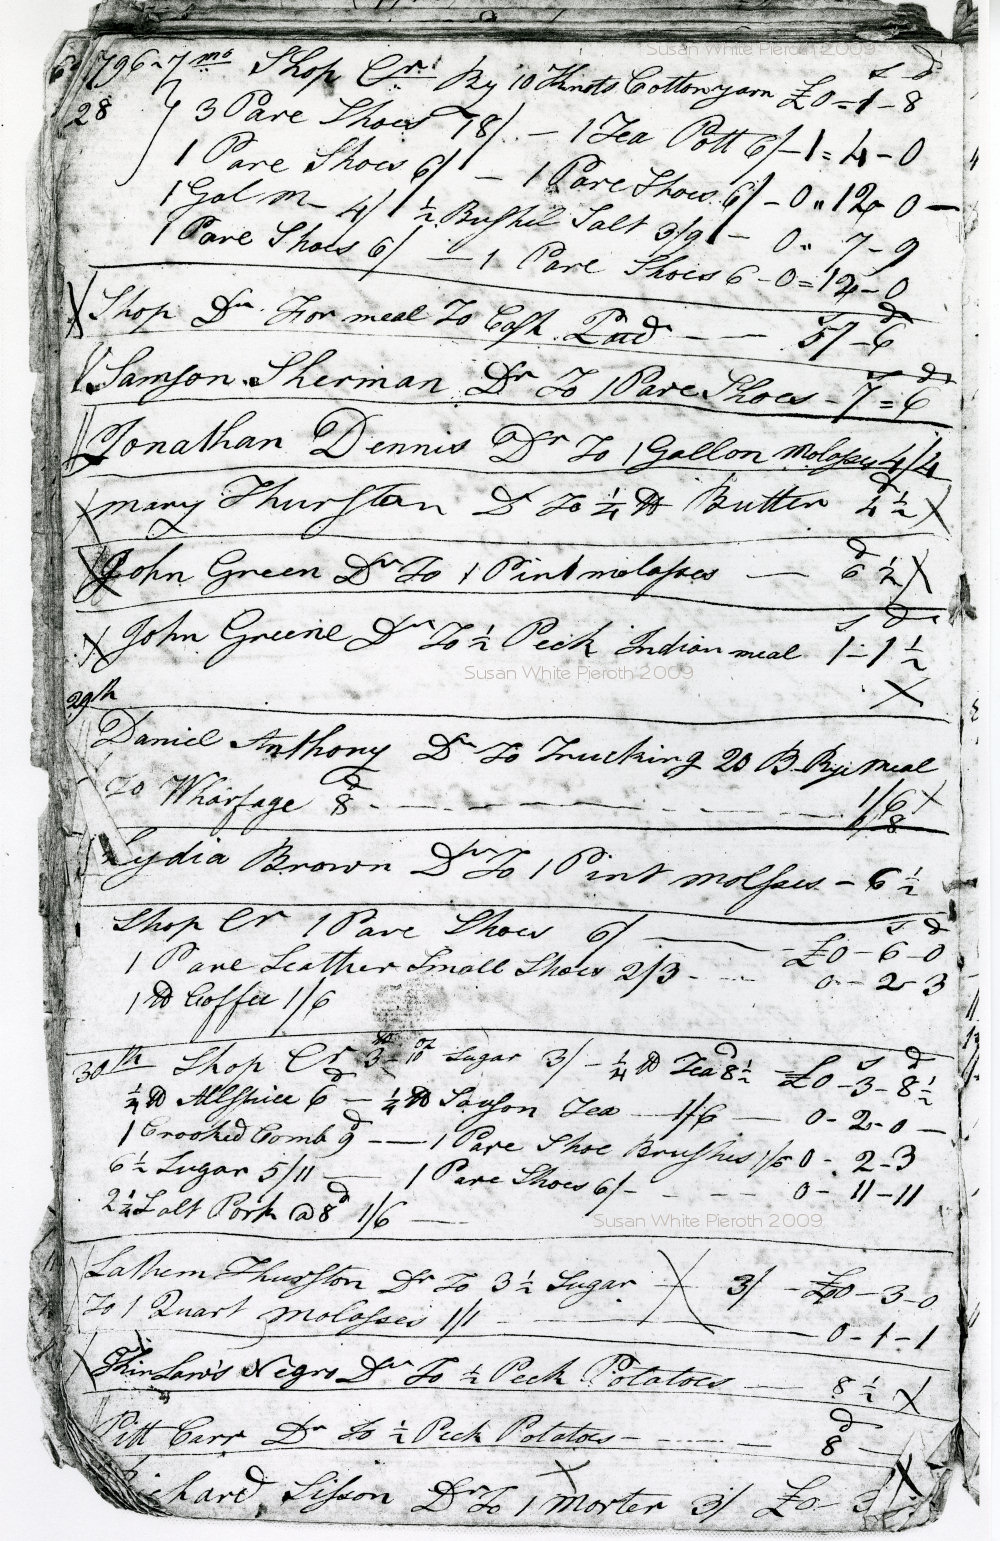 Susan White Pieroth 2009
6 1796 - 7 mo Shop Cr By 10 Knots Cotton yarn £0 = 1 - 8
28 3 Pare Shoes 18/ - 1 Tea Pott 6/ - 1 = 4 - 0
1 Pare Shoes 6/ - 1 Pare Shoes 6/ - 0 " 12 - 0
1 Gal m - 4/ ½ Bushel Salt 3/9 - 0 " 7 - 9
1 Pare Shoes 6/ - 1 Pare Shoes 6 - 0 = 12 - 0
Shop Dr For meal To Cash Paid - - 5/ - 6
Samson Sherman Dr To 1 Pare Shoes - 7 = 6
Jonathan Dennis Dr To 1 Gallon Molasses 4/4
mary Thurston Dr To ¼ lb Butter 4 ½ X
X John Green Dr To 1 Pint molasses - 6 ½ X
X John Greene Dr To ½ Peck Indian meal 1 - 1 ½
Susan White Pieroth 2009
X
29th
Daniel Anthony Dr To Trucking 20 B Rye meal
To Wharfage 8 d - - - - 1/6 X
8
Lydia Brown Dr To 1 Pint molsses - 6 ½
Shop Cr 1 Pare Shoes 6/ - £0 - 6 - 0
1 Pare Leather Small Shoes 2/3 - - 0 - 2 - 3
1 lb Coffee 1/6
30th Shop Cr 3 lb - 10 oz Sugar 3/ - ¼ lb Tea 8 ½ £0 - 3 - 8 ½
¼ lb Allspice 6 d - ¼ lb Souson Tea - 1/6 - 0 - 2 - 0 -
1 Crooked Comb 9 d - 1 Pare Shoe Brushes 1/6 0 - 2 - 3
6 ½ Sugar 5/11 - 1 Pare Shoes 6/ - - - - 0 - 11 - 11
2 ¼ Salt Pork @ 8 d 1/6 -
Susan White Pieroth 2009
Lathem Thurston Dr To 3 ½ Sugar X 3/ - £0 - 3 - 0
To 1 Quart Molasses 1/1 - 0 - 1 - 1
Negro Dr To ½ Peck Potatoes - 8 ½ X
Pitt Carr Dr To ½ Peck Potatoes - - - 8 d -
Richard Sisson Dr To 1 Morter 3/ £0 - 3